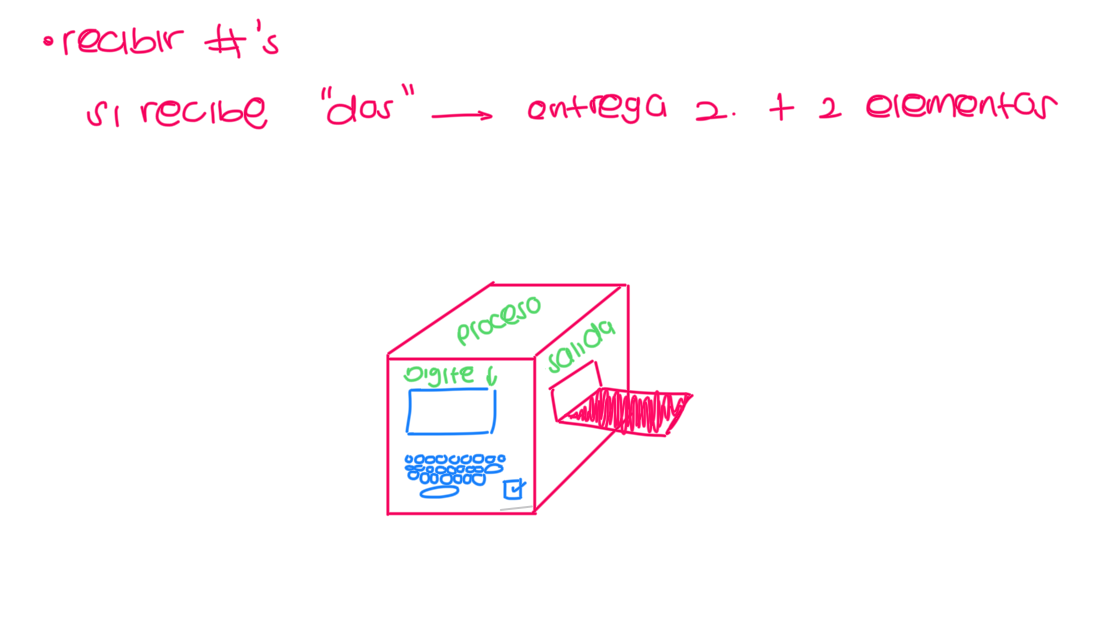 • recibir #'s
si recibe "dos" → entrega 2. + 2 elementos
proceso
salida
Digite ↓